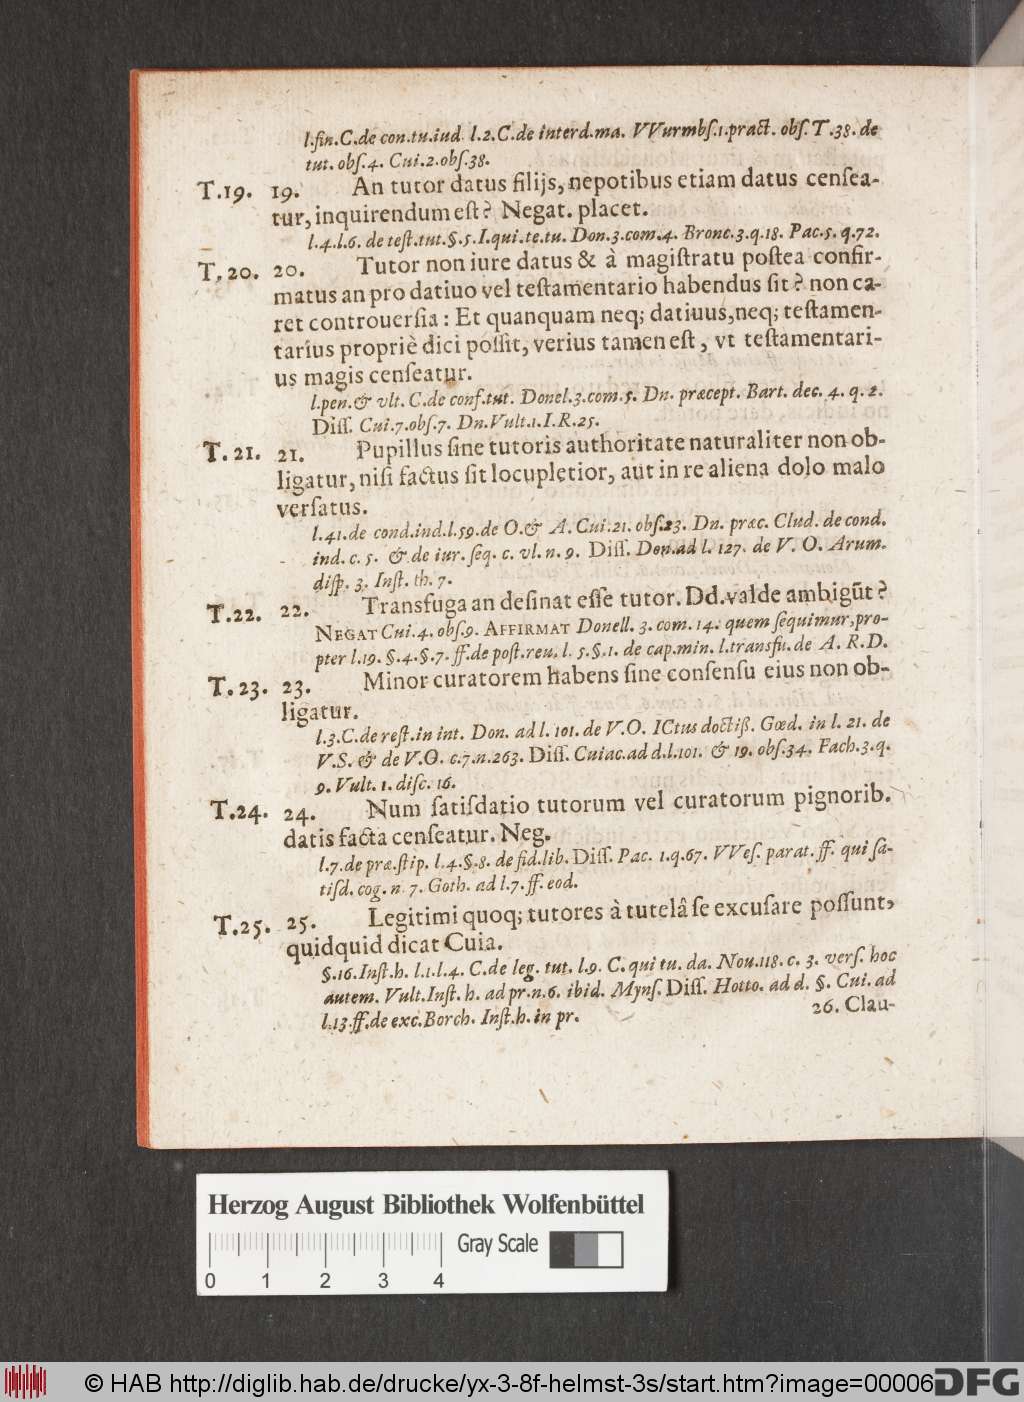 l.fin.C.de con.tu.iud. l.2.C.de interd.ma. VVurmbſ.1.pract. obſ. T.38. de
tut. obſ.4. Cui.2.obſ.38.
T.19. 19. An tutor datus filijs, nepotibus etiam datus cenſea-
tur, inquirendum eſt? Negat. placet.
l.4.l.6. de teſt.tut.§.5.I.qui.te.tu. Don.3.com.4. Bronc.3.q.18. Pac.5. q.72.
T.20. 20. Tutor non iure datus & à magiſtratu poſtea confir-
matus an pro datiuo vel teſtamentario habendus ſit? non ca-
ret controuerſia: Et quanquam neq; datiuus, neq; teſtamen-
tarius propriè dici poſſit, verius tamen eſt, vt teſtamentari-
us magis cenſeatur.
l.pen.& vlt. C.de conf.tut. Donel.3.com.5. Dn. præcept. Bart. dec. 4. q. 2.
Diſſ. Cui.7.obſ.7. Dn.Vult.1.I.R.25.
T. 21. 21. Pupillus ſine tutoris authoritate naturaliter non ob-
ligatur, niſi factus ſit locupletior, aut in re aliena dolo malo
verſatus.
l.41.de cond.ind.l.59.de O.& A. Cui.21. obſ.23. Dn. præc. Clud. de cond.
ind. c. 5. & de iur. ſeq. c. vl. n. 9. Diſſ. Don.ad l. 127. de V. O. Arum.
diſp. 3. Inſt. th. 7.
T.22. 22. Transfuga an deſinat eſſe tutor. Dd.valde ambigūt?
NEGAT Cui.4. obſ.9. AFFIRMAT Donell. 3. com. 14. quem ſequimur, pro-
pter l.19. §.4.§.7. ff.de poſt.reu. l. 5.§.1. de cap.min. l.transfu.de A. R.D.
T.23. 23. Minor curatorem habens ſine conſenſu eius non ob-
ligatur.
l.3.C.de reſt.in int. Don. ad l. 101. de V.O. ICtus doctiß. Gœd. in l. 21. de
V.S. & de V.O. c.7.n.263. Diſſ. Cuiac.ad d.l.101. & 19. obſ.34. Fach.3.q.
9. Vult. 1. diſc. 16.
T.24. 24. Num ſatiſdatio tutorum vel curatorum pignorib.
datis facta cenſeatur. Neg.
l.7.de præ.ſtip. l.4.§.8. de fid.lib. Diſſ. Pac. 1.q.67. VVeſ. parat. ff. qui ſa-
tiſd. cog. n. 7. Goth. ad l.7. ff. eod.
T.25. 25. Legitimi quoq; tutores à tutelâ ſe excuſare poſſunt,
quidquid dicat Cuia.
§.16.Inſt.h. l.1.l.4. C.de leg. tut. l.9. C. qui tu. da. Nou.118. c. 3. verſ. hoc
autem. Vult.Inſt. h. ad pr.n.6. ibid. Mynſ. Diſſ. Hotto. ad d. §. Cui. ad
l.13.ff.de exc.Borch. Inſt.h. in pr.
26. Clau-
Herzog August Bibliothek Wolfenbüttel
Gray Scale
0 1 2 3 4
© HAB http://diglib.hab.de/drucke/yx-3-8f-helmst-3s/start.htm?image=00006
DFG